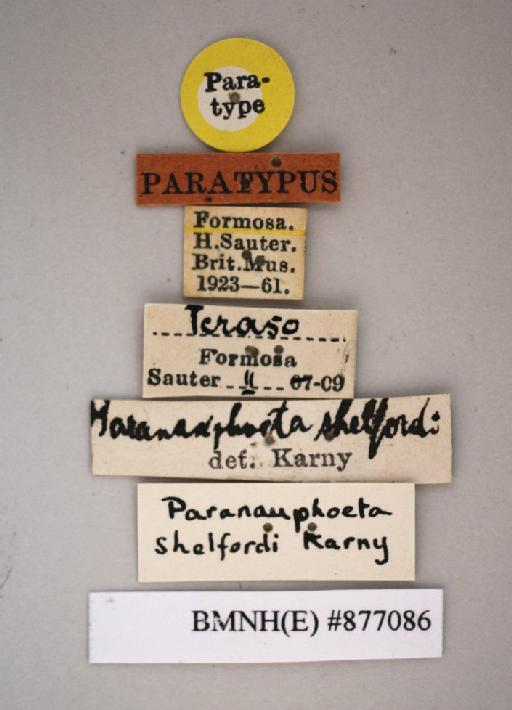 Para-
type
PARATYPUS
Formosa.
H.Sauter.
Brit.Mus.
1923—61.
Teraso
Formosa
Sauter II 07-09
Paranauphoeta shelfordi
det. Karny
Paranauphoeta
shelfordi Karny
BMNH(E) #877086